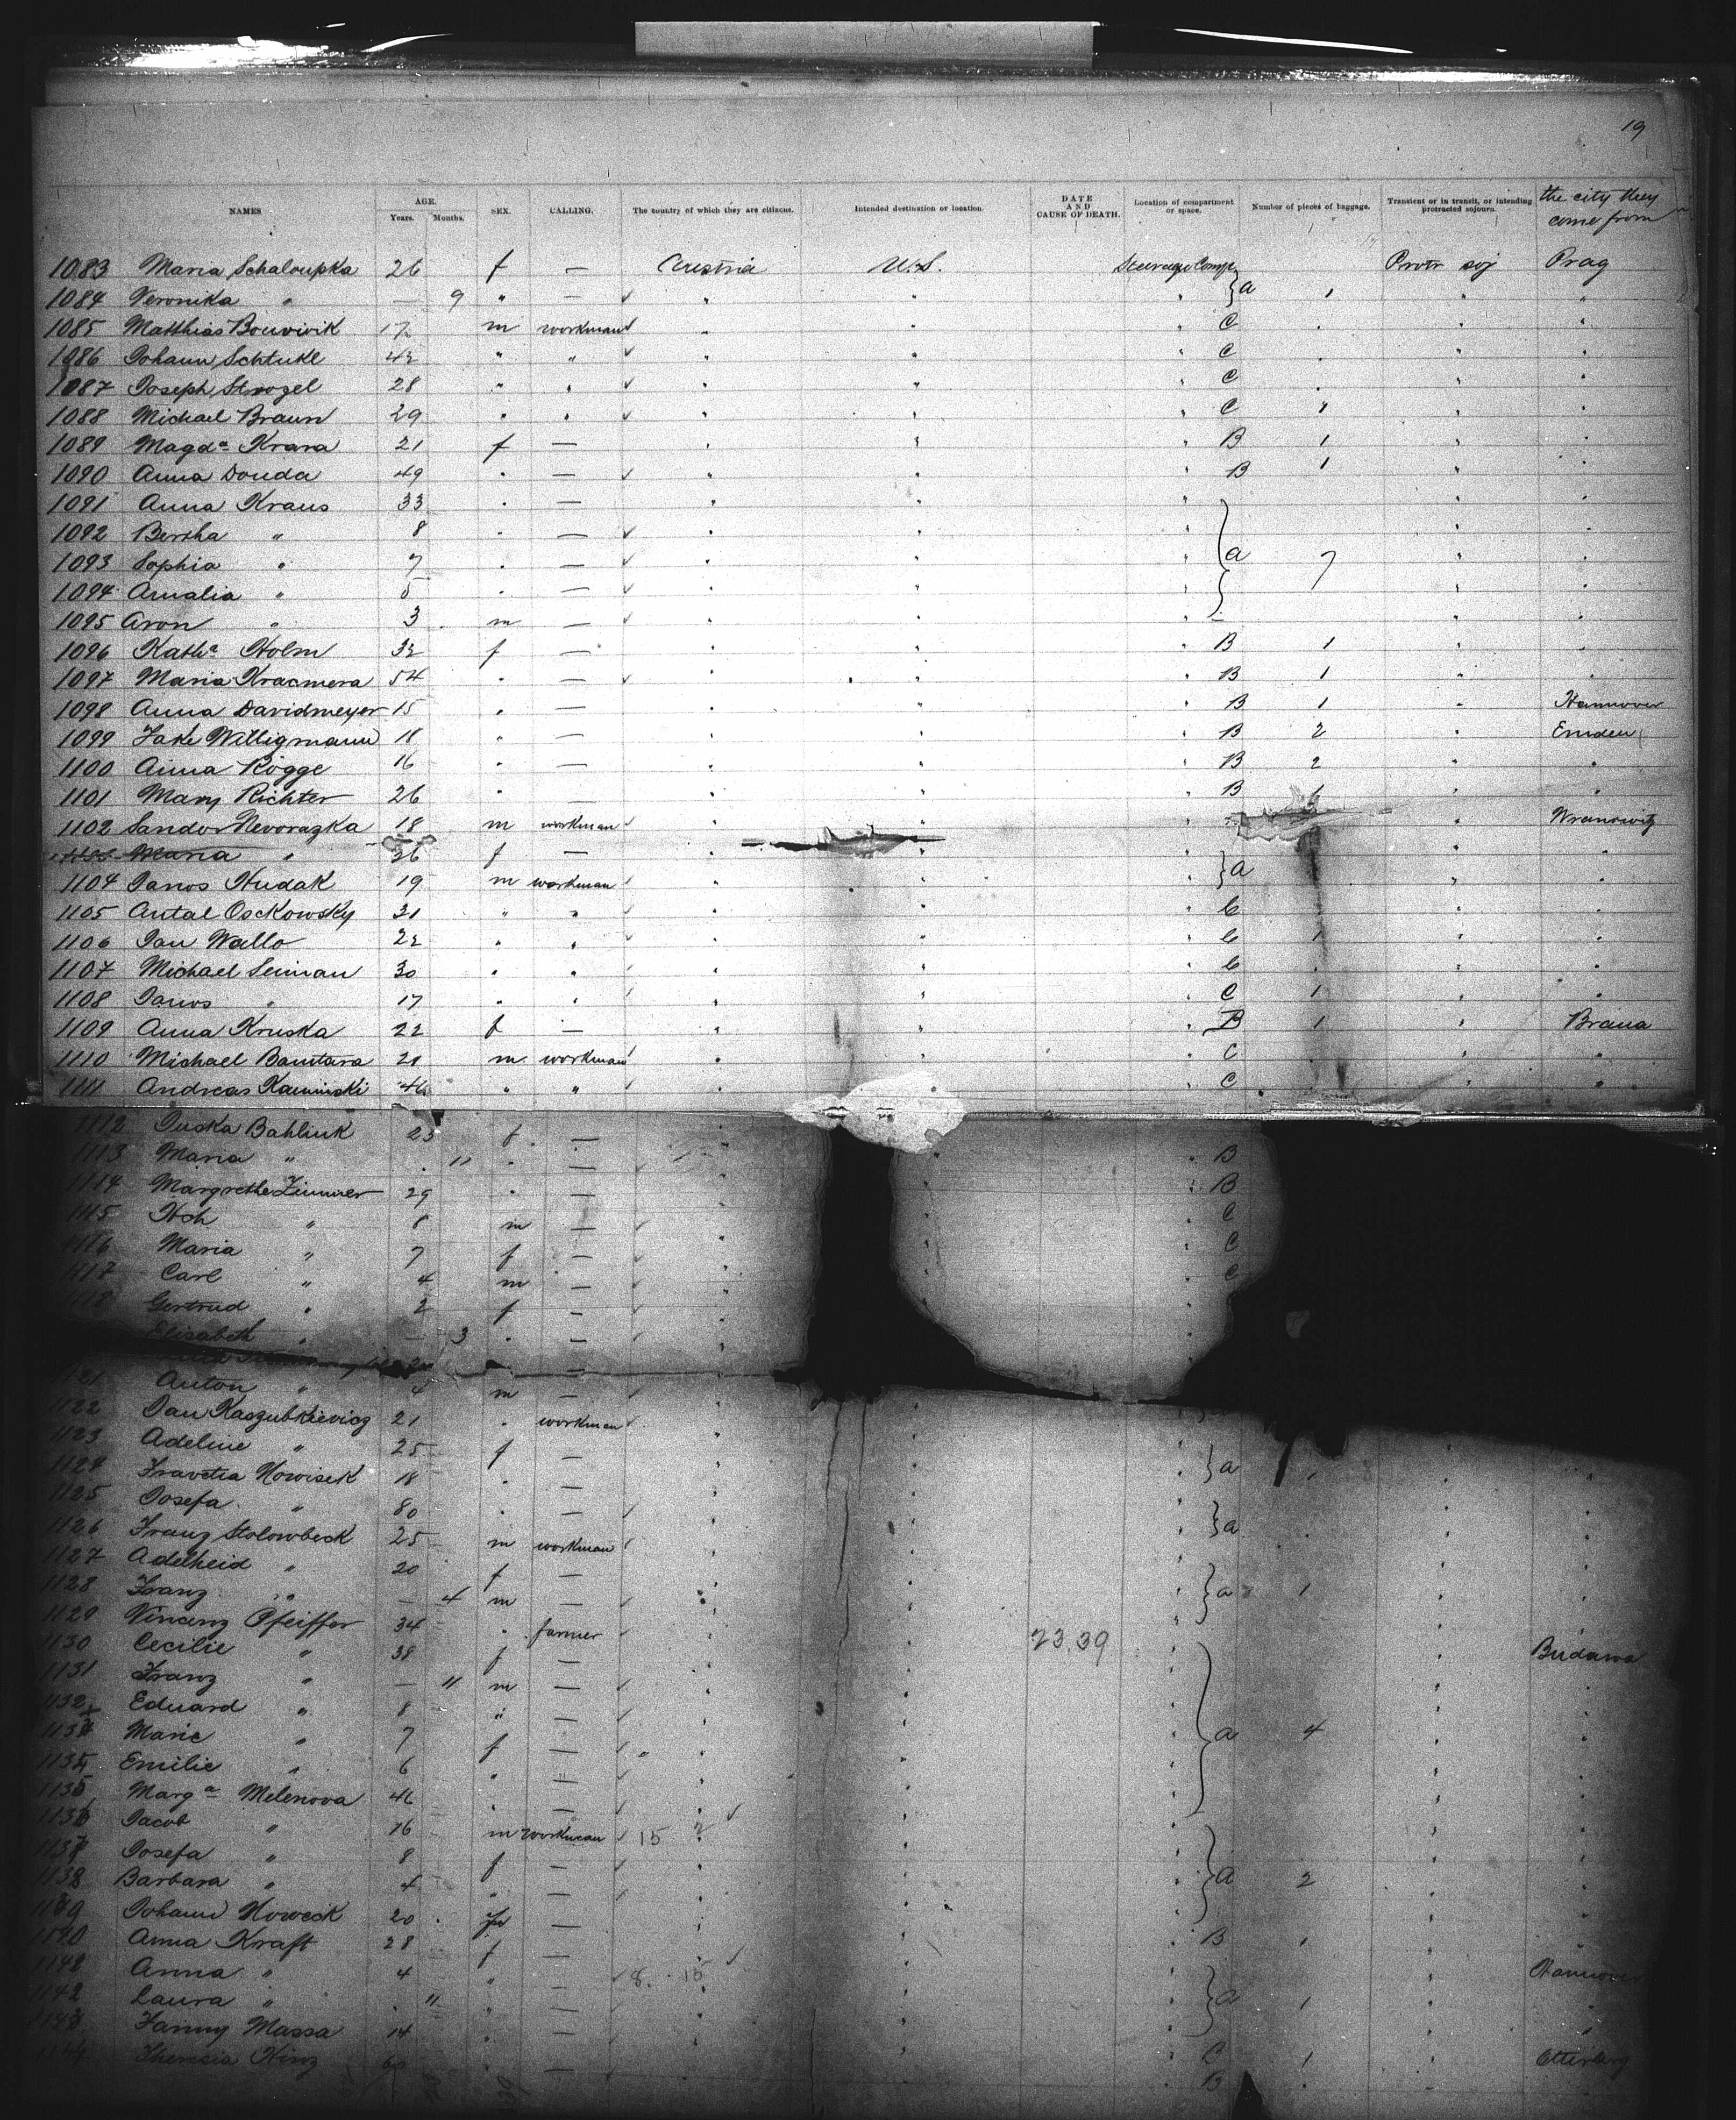 19
NAMES AGE. Years. Months. SEX. CALLING. The country of which they are citizens. Intended destination or location. DATE AND CAUSE OF DEATH. Location of compartment or space. Number of pieces of baggage. Transient or in transit, or intending protracted sojourn. the city they come from
1083 Maria Schaloupka 26 f — Austria U.S. Steerage Comp. Protr soj Prag
1084 Veronika " — 9 " — " " " a 1 " "
1085 Matthias Bouvivik 17 m workman " " " C " " "
1086 Johann Schtukl 42 " " " " " C " " "
1087 Joseph Strozel 28 " " " " " C " " "
1088 Michael Braun 29 " " " " " C " " "
1089 Magda Krava 21 f — " " " B 1 " "
1090 Anna Douda 49 " — " " " B 1 " "
1091 Anna Kraus 33 " — " " " " "
1092 Bertha " 8 " — " " " " "
1093 Sophia " 7 " — " " " a 7 " "
1094 Amalia " 5 " — " " " " "
1095 Aron " 3 m — " " " " "
1096 Katha Holm 32 f — " " " B 1 " "
1097 Maria Kracmera 54 " — " " " B 1 " "
1098 Anna Davidmeyer 15 " — " " " B 1 " Hannover
1099 Fake Willigmann 18 " — " " " B 2 " Emden
1100 Anna Rogge 16 " — " " " B 2 " "
1101 Mary Richter 26 " — " " " B 1 " "
1102 Sandor Nevorazka 18 m workman " " " " Wranowitz
Maria " 26 f — " " " "
1104 Janos Hudak 19 m workman " " " a " "
1105 Antal Osckowsky 31 " " " " " C " "
1106 Jan Wallo 22 " " " " " C 1 " "
1107 Michael Seiman 30 " " " " " C " " "
1108 Janos " 17 " " " " " C 1 " "
1109 Anna Kruska 22 f — " " " B 1 " Brana
1110 Michael Bantara 21 m workman " " " C " " "
1111 Andreas Kaminski 46 " " " " " C " " "
1112 Juska Bahlink 23 f —
1113 Maria " 11 " — " B
1114 Margrethe Zimmer 29 " — " B
1115 Hch " 8 m — " C
1116 Maria " 7 f — " C
1117 Carl " 4 m — " C
1118 Gertrud " 2 f — "
Elisabeth " — 3 " — "
1121 Anton " 4 m —
1122 Jan Kaszubkievicz 21 " workman
1123 Adeline " 25 f — "
1124 Fravetia Nowisek 18 " — " a
1125 Josefa " 80 " — "
1126 Franz Stolowbeck 25 m workman " a
1127 Adelheid " 20 f — "
1128 Franz " — 4 m — " a 1
1129 Vincenz Pfeiffer 34 " farmer "
1130 Cecilie " 38 f — 23.39 Budawa
1131 Franz " — 11 m — "
1132 Eduard " 8 " — "
Marie " 7 f — " a 4
Emilie " 6 " — "
Marga Melenova 46 " — "
Jacob " 16 m workman 15 2
1137 Josefa " 8 f —
1138 Barbara " 4 " — a 2
1139 Johann Noweck 20 —
1140 Anna Kraft 28 f — B
Anna " 4 " — 8. 15 Hannover
1142 Laura " 11 " — a 1
1143 Fanny Massa 14 " —
1144 Theresia Hinz 60 " — 1 Otterberg
B